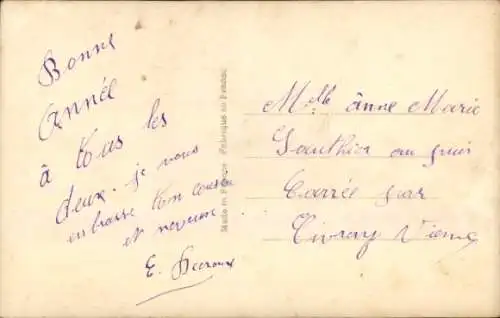 Bonne
Année
à tous les
deux. je vous
embrasse ton cousin
et neveux
E.
Made in France Fabriqué en France
Mlle Anne Marie
Gauthier au puis
Carré par
Civray Vienne